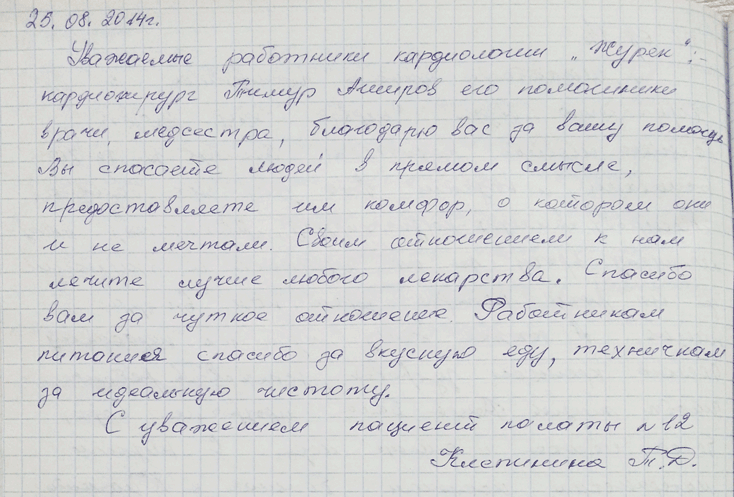 25.08.2014г.
Уважаемые работники кардиологии „Журек":-
кардиохирург Тимур Аширов его помощники
врачи, медсестра, благодарю вас за вашу помощь
Вы спасаете людей в прямом смысле,
предоставляете им комфор, о котором они
и не мечтали. Своим отношением к нам
лечите лучше любого лекарства. Спасибо
вам за чуткое отношение. Работникам
питания спасибо за вкусную еду, техничкам
за идеальную чистоту.
С уважением пациент палаты №12
Клепинина Т.Д.